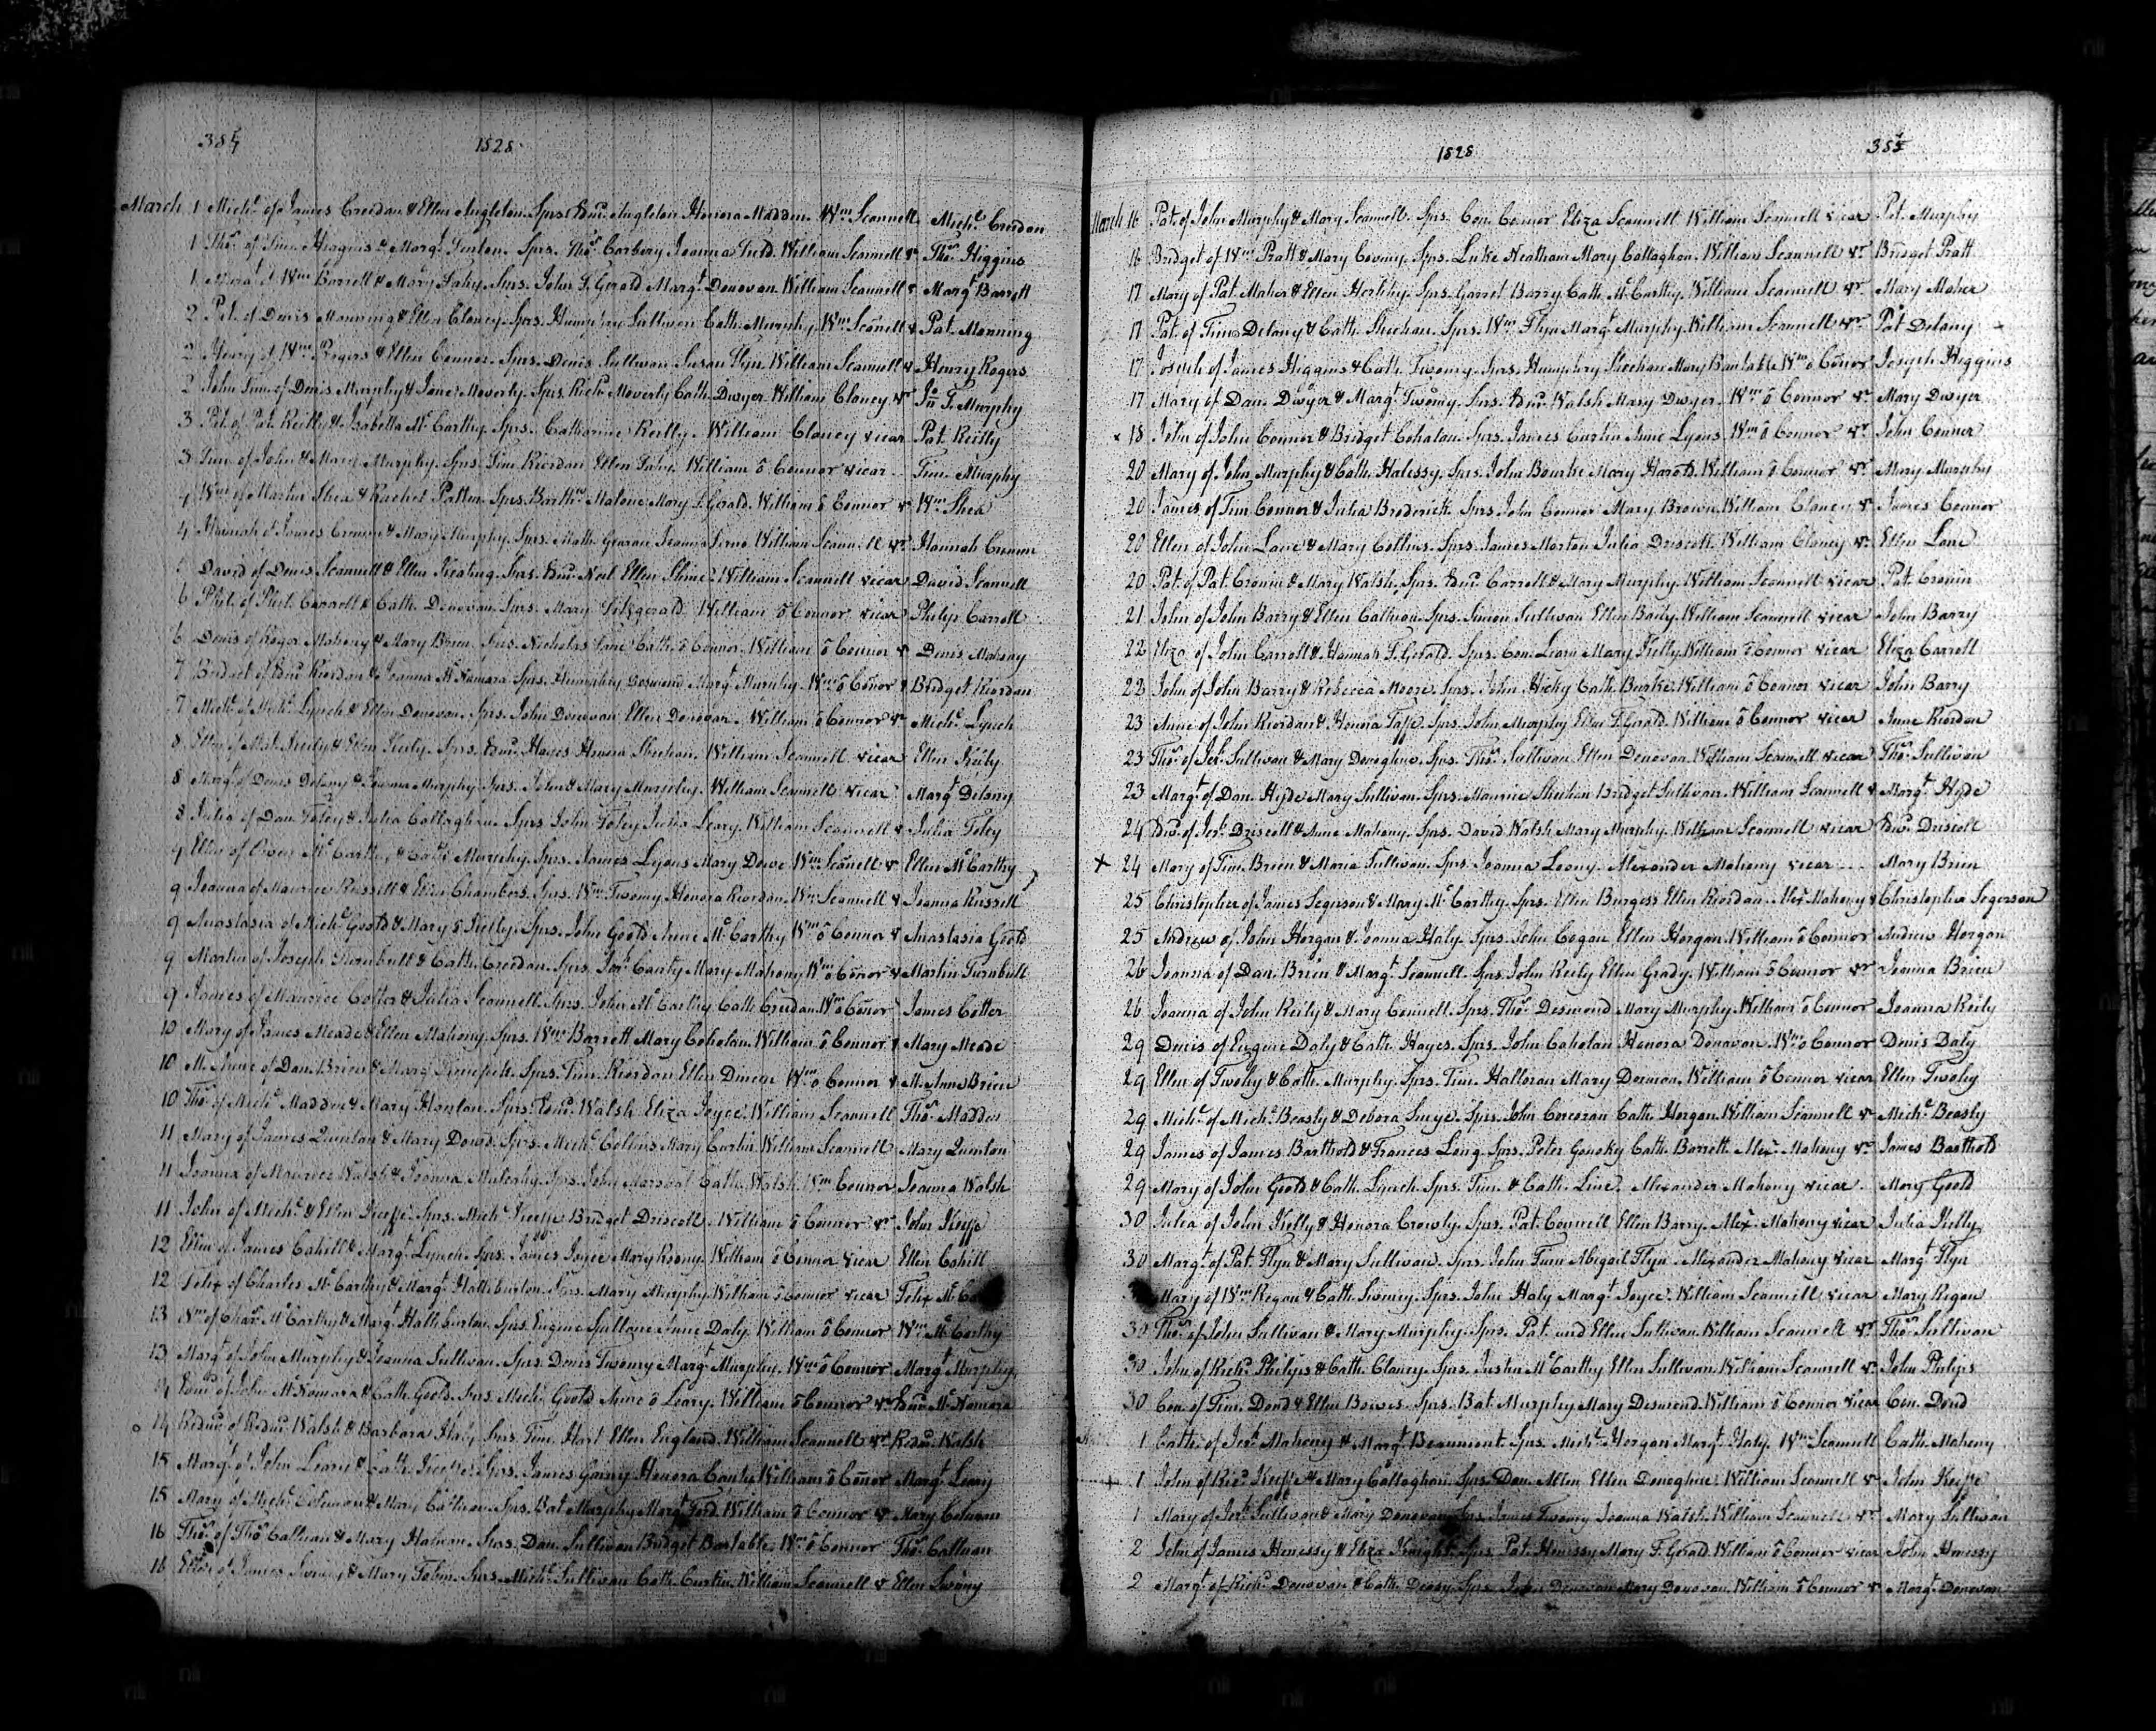 384
1828
March 1 Mich.l of James Creedan & Ellen Singleton. Sprs. Edw.d Singleton Honora Madden. W.m Scannell Mich.l Creedan
1 Tho.s of Tim. Higgins & Marg.t Fenton. Sprs. Tho.s Carbery Joanna Field. William Scannell vr Tho.s Higgins
1 Marg.t of W.m Barrett & Mary Fahy. Sprs. John F.Gerald Marg.t Donovan. William Scannell v Marg.t Barrett
2 Pat. of Denis Manning & Ellen Clancy. Sprs. Humphry Sullivan Cath. Murphy. W.m Scanell v Pat. Manning
2 Henry of W.m Rogers & Ellen Connor. Sprs. Denis Sullivan Susan Flyn. William Scannell v Henry Rogers
2 John Tim. of Denis Murphy & Jane Moverly. Sprs. Rich.d Moverly Cath. Dwyer. William Clancy vr Jn. T. Murphy
3 Pat. of Pat. Reilly & Isabella McCarthy. Sprs. Catharine Reilly. William Clancy vicar Pat. Reilly
3 Tim. of John & Mary Murphy. Sprs. Tim. Riordan Ellen Fahy. William ō Connor vicar Tim. Murphy
4 W.m of Martin Shea & Rachel Patten. Sprs. Barth.w Malone Mary F.Gerald. William ō Connor vr W.m Shea
4 Hannah of James Cronin & Mary Murphy. Sprs. Math. Joanna William Scannell vr Hannah Cronin
David of Denis Scannell & Ellen Keating. Sprs. Edw.d Neil Ellen Shine. William Scannell vicar David Scannell
6 Phil. of Phil. Carroll & Cath. Donovan. Sprs. Mary Fitzgerald. William ō Connor vicar Philip Carroll
6 Denis of Roger Mahony & Mary Brien. Sprs. Nicholas Lane Cath. ō Connor. William ō Connor vr Denis Mahony
7 Bridget of Edw.d Riordan & Joanna McNamara. Sprs. Humphry Desmond Marg.t Murphy. W.m ō Conor v Bridget Riordan
7 Mich.l of Mich.l Lynch & Ellen Donovan. Sprs. John Donovan Ellen Donovan. William ō Connor vr Mich.l Lynch
8 Ellen of Keily & Ellen Keily. Sprs. Edw.d Hayes Honora Sheehan. William Scannell vicar Ellen Keily
8 Marg.t of Denis Delany & Joanna Murphy. Sprs. John & Mary Murphy. William Scannell vicar Marg.t Delany
8 Julia of Dan. Foley & Julia Callaghan. Sprs. John Foley Julia Leary. William Scannell v Julia Foley
9 Ellen of Owen McCarthy & Murphy. Sprs. James Lyons Mary Dowe W.m Scanell vr Ellen McCarthy
9 Joanna of Maurice Russell & Ellen Chambers. Sprs. W.m Twomy Honora Riordan. W.m Scannell v Joanna Russell
9 Anastasia of Mich.l Goold & Mary ō Kelly. Sprs. John Goold Anne McCarthy W.m ō Connor v Anastasia Goold
9 Martin of Joseph Turnbull & Cath. Creedan. Sprs. Jer.h Canty Mary Mahony W.m ō Conor v Martin Turnbull
9 James of Maurice Cotter & Julia Scannell. Sprs. John McCarthy Cath. Creedan. W.m ō Conor James Cotter
10 Mary of James Meade & Ellen Mahony. Sprs. W.m Barrett Mary Coholan. William ō Connor v Mary Meade
10 M. Anne of Dan. Brien & Marg.t Sprs. Tim. Riordan Ellen Dineen W.m ō Connor v M. Anne Brien
10 Tho.s of Mich.l Madden & Mary Hanlon. Sprs. Edm.d Walsh Eliza Joyce. William Scannell Tho.s Madden
11 Mary of James Quinlan & Mary Dowd. Sprs. Mich.l Collins Mary Curtin William Scannell Mary Quinlan
11 Joanna of Maurice Walsh & Joanna Mulcahy. Sprs. John Marshal Cath. Walsh. W.m Connor Joanna Walsh
11 John of Mich.l & Ellen Keeffe. Sprs. Mich.l Keeffe Bridget Driscoll. William ō Connor vr John Keeffe
12 Ellen of James Cahill & Marg.t Lynch. Sprs. James Joyce Mary Roony. William ō Connor vicar Ellen Cahill
12 Felix of Charles McCarthy & Marg.t Halliburton. Sprs. Mary Murphy William ō Connor vicar Felix Mc
13 W.m of Cha.s McCarthy & Marg.t Halliburton. Sprs. Eugene Spillane Anne Daly. William ō Connor W.m McCarthy
13 Marg.t of John Murphy & Joanna Sullivan. Sprs. Denis Twomy Marg.t Murphy. W.m ō Connor Marg.t Murphy
14 Edw.d of John McNamara & Cath. Goold. Sprs. Mich.l Goold Anne ō Leary. William ō Connor vr Edw.d McNamara
14 Redm.d of Redm.d Walsh & Barbara Haly. Sprs. Tim. Hart Ellen England. William Scannell vr Redm.d Walsh
15 Marg.t of John Leary & Cath. Keeffe. Sprs. James Gainy Honora Canty William ō Conor Marg.t Leary
15 Mary of Mich.l Colman & Mary Calnan. Sprs. Bat. Murphy Marg.t Ford. William ō Connor v Mary Colman
16 Tho.s of Tho.s Callnan & Mary Halnan. Sprs. Dan. Sullivan Bridget Bastable. W.m ō Connor Tho.s Callnan
16 Ellen of James Swiny & Mary Tobin. Sprs. Mich.l Sullivan Cath. Curtin. William Scannell v Ellen Swiny
1828
385
March 16 Pat. of John Murphy & Mary Scannell. Sprs. Con. Connor Eliza Scannell William Scannell vicar Pat. Murphy
16 Bridget of W.m Pratt & Mary Coveny. Sprs. Luke Neatham Mary Callaghan. William Scannell vr Bridget Pratt
17 Mary of Pat. Maher & Ellen Hertihy. Sprs. Garret Barry Cath. McCarthy. William Scannell vr Mary Maher
17 Pat. of Tim. Delany & Cath. Sheehan. Sprs. W.m Flyn Marg.t Murphy. William Scannell vr Pat Delany
17 Joseph of James Higgins & Cath. Twomy. Sprs. Humphry Sheehan Mary Bastable W.m ō Conor Joseph Higgins
17 Mary of Dan. Dwyer & Marg.t Twomy. Sprs. Edw.d Walsh Mary Dwyer. W.m ō Connor vr Mary Dwyer
x 18 John of John Connor & Bridget Coholan. Sprs. James Curtin Anne Lyons W.m ō Connor vr John Connor
20 Mary of John Murphy & Cath. Halessy. Sprs. John Bourke Mary Harold. William ō Connor vr Mary Murphy
20 James of Tim Connor & Julia Broderick. Sprs. John Connor Mary Brown. William Clancy v James Connor
20 Ellen of John Lane & Mary Collins. Sprs. James Morton Julia Driscoll. William Clancy vr Ellen Lane
20 Pat. of Pat. Cronin & Mary Walsh. Sprs. Edw.d Carroll & Mary Murphy. William Scannell vicar Pat. Cronin
21 John of John Barry & Ellen Callnan. Sprs. Simon Sullivan Ellen Baily. William Scannell vicar John Barry
22 Eliza of John Carroll & Hannah F.Gerald. Sprs. Con. Leary Mary Kelly. William ō Connor vicar Eliza Carroll
22 John of John Barry & Rebecca Moore. Sprs. John Hicky Cath. Burke. William ō Connor vicar John Barry
23 Anne of John Riordan & Honora Taffe. Sprs. John Murphy Ellen F.Gerald. William ō Connor vicar Anne Riordan
23 Tho.s of Jer.h Sullivan & Mary Donoghue. Sprs. Tho.s Sullivan Ellen Donovan. William Scannell vicar Tho.s Sullivan
23 Marg.t of Dan. Hyde Mary Sullivan. Sprs. Maurice Sheehan Bridget Sullivan. William Scannell v Marg.t Hyde
24 Edw.d of Jer.h Driscoll & Anne Mahony. Sprs. David Walsh Mary Murphy. William Scannell vicar Edw.d Driscoll
x 24 Mary of Tim. Brien & Maria Sullivan. Sprs. Joanna Leary. Alexander Mahony vicar Mary Brien
25 Christopher of James Segerson & Mary McCarthy. Sprs. Ellen Burgess Ellen Riordan. Alex.r Mahony v Christopher Segerson
25 Andrew of John Horgan & Joanna Haly. Sprs. John Cogan Ellen Horgan. William ō Connor Andrew Horgan
26 Joanna of Dan. Brien & Marg.t Scannell. Sprs. John Keily Ellen Grady. William ō Connor vr Joanna Brien
26 Joanna of John Keily & Mary Connell. Sprs. Tho.s Desmond Mary Murphy. William ō Connor Joanna Keily
29 Denis of Eugene Daly & Cath. Hayes. Sprs. John Coholan Honora Donovan. W.m ō Connor Denis Daly
29 Ellen of Twohy & Cath. Murphy. Sprs. Tim. Halloran Mary Dorman. William ō Connor vicar Ellen Twohy
29 Mich.l of Mich.l Beasly & Debora Sweye. Sprs. John Corcoran Cath. Horgan. William Scannell vr Mich.l Beasly
29 James of James Barthold & Frances Long. Sprs. Peter Cath. Barrett. Alex.r Mahony vr James Barthold
29 Mary of John Goold & Cath. Lynch. Sprs. Tim. & Cath. Line. Alexander Mahony vicar. Mary Goold
30 Julia of John Kelly & Honora Crowly. Sprs. Pat. Connell Ellen Barry. Alex.r Mahony vicar Julia Kelly
30 Marg.t of Pat. Flyn & Mary Sullivan. Sprs. John Abigail Flyn. Alexander Mahony vicar Marg.t Flyn
Mary of W.m Regan & Cath. Swiney. Sprs. John Haly Marg.t Joyce. William Scannell vicar Mary Regan
30 Tho.s of John Sullivan & Mary Murphy. Sprs. Pat. and Ellen Sullivan. William Scannell vr Tho.s Sullivan
30 John of Rich.d Philips & Cath. Clancy. Sprs. Justin McCarthy Ellen Sullivan. William Scannell vr John Philips
30 Con. of Tim. Dowd & Ellen Bowes. Sprs. Bat. Murphy Mary Desmond. William ō Connor vicar Con. Dowd
1 Cath. of Jer.h Mahony & Marg.t Beaumont Sprs. Mich.l Horgan Marg.t Haly. W.m Scannell Cath. Mahony
+ 1 John of Ric.d Keeffe & Mary Callaghan. Sprs. Dan. Allen Ellen Donoghue. William Scannell vr John Keeffe
1 Mary of Jer.h Sullivan & Mary Donovan. Sprs. James Twomy Joanna Walsh. William Scannell vr Mary Sullivan
2 John of James Henessy & Eliza Knight. Sprs. Pat. Henessy Mary F.Gerald. William ō Connor vicar John Henessy
2 Marg.t of Rich.d Donovan & Cath. Deasy. Sprs. John Donovan Mary Donovan. William ō Connor vr Marg.t Donovan